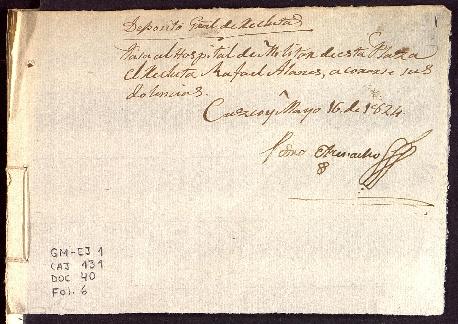 Deposito Gral de Reclutas
Pasa al Hospital de Militar de esta Plaza
el Recluta Rafael Alares, a curarse sus
dolencias.
Cuzco y Mayo 16. de 1824
Pedro
GM-EJ 1
CAJ 131
DOC 40
FOL. 6
1